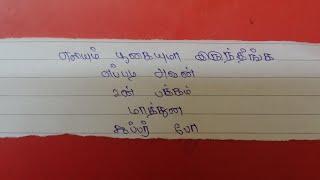 எலியும் பூகையுமா இருந்தீங்க
எப்புடி அவன்
உன் பக்கம்
மாத்துன
சூப்பர் போ